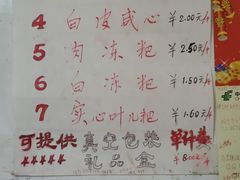 4 白皮咸心 ¥2.00元/个
5 肉冻粑 ¥2.50元/个
6 白冻粑 ¥1.50元/个
7 实心叶儿粑 ¥1.60元/个
可提供 真空包装 单计费
礼品盒 ¥8.00元/